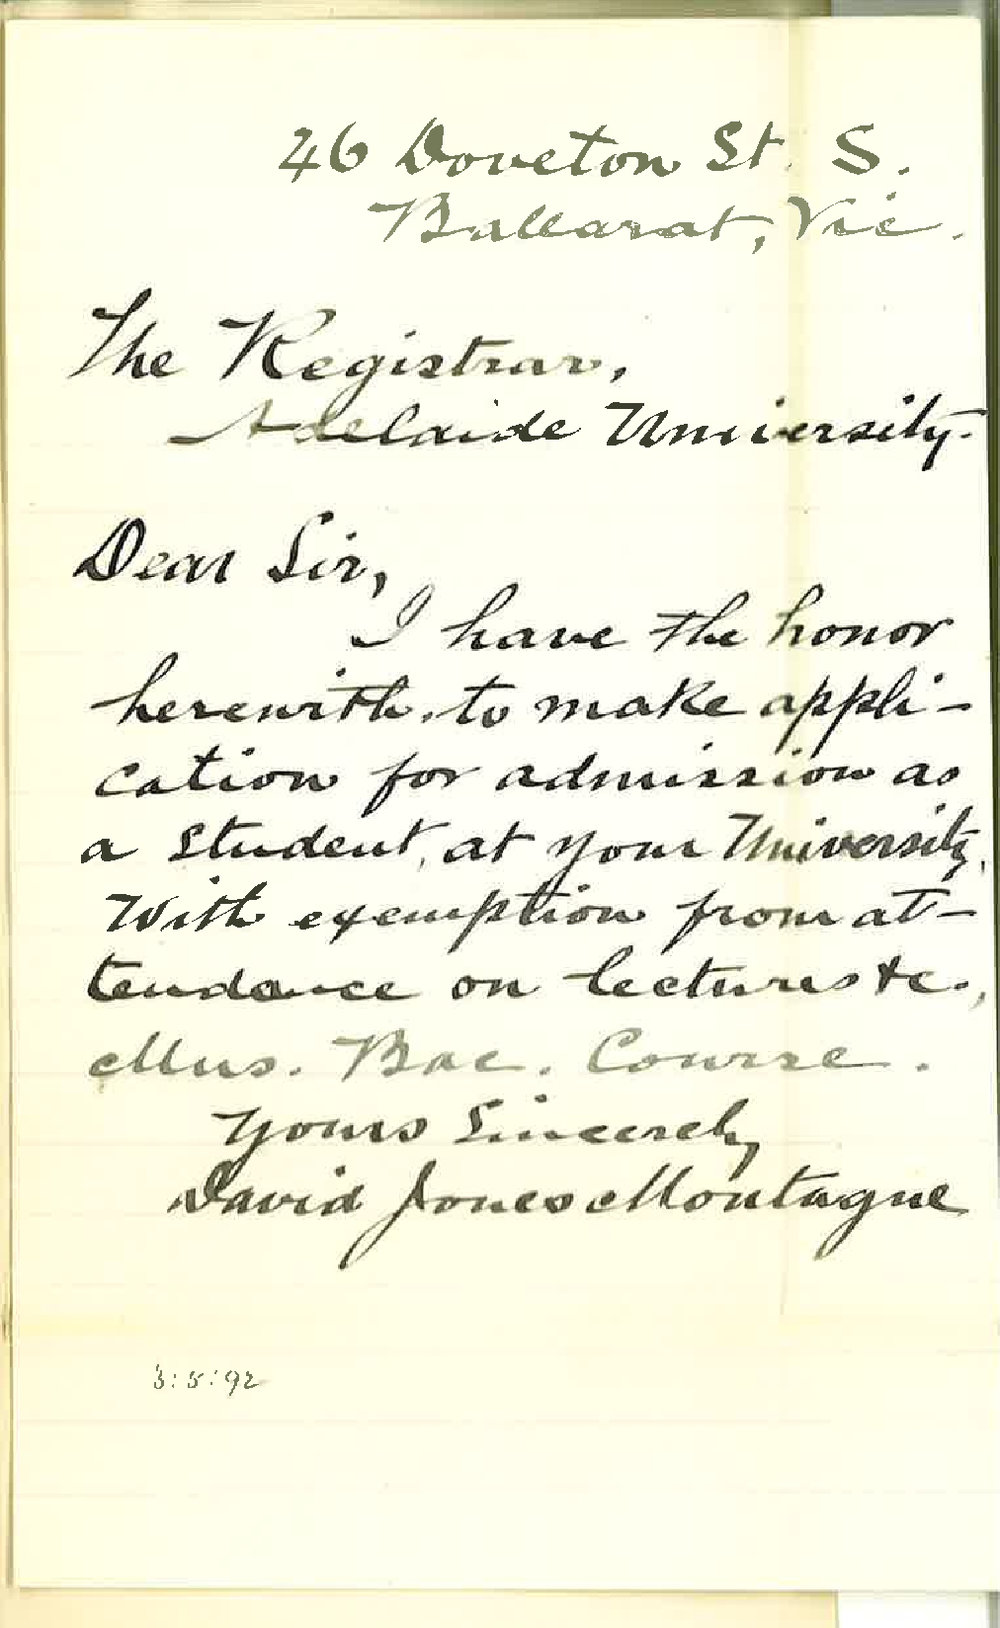 26 Doveton St. S.
Ballarat, Vic.
The Registrar,
Adelaide University.
Dear Sir,
I have the honor
herewith, to make appli-
cation for admission as
a student, at your University,
With exemption from at-
tendance on lectures &c.,
Mus. Bac. Course.
Yours Sincerely
David Jones Montague
3:5:92